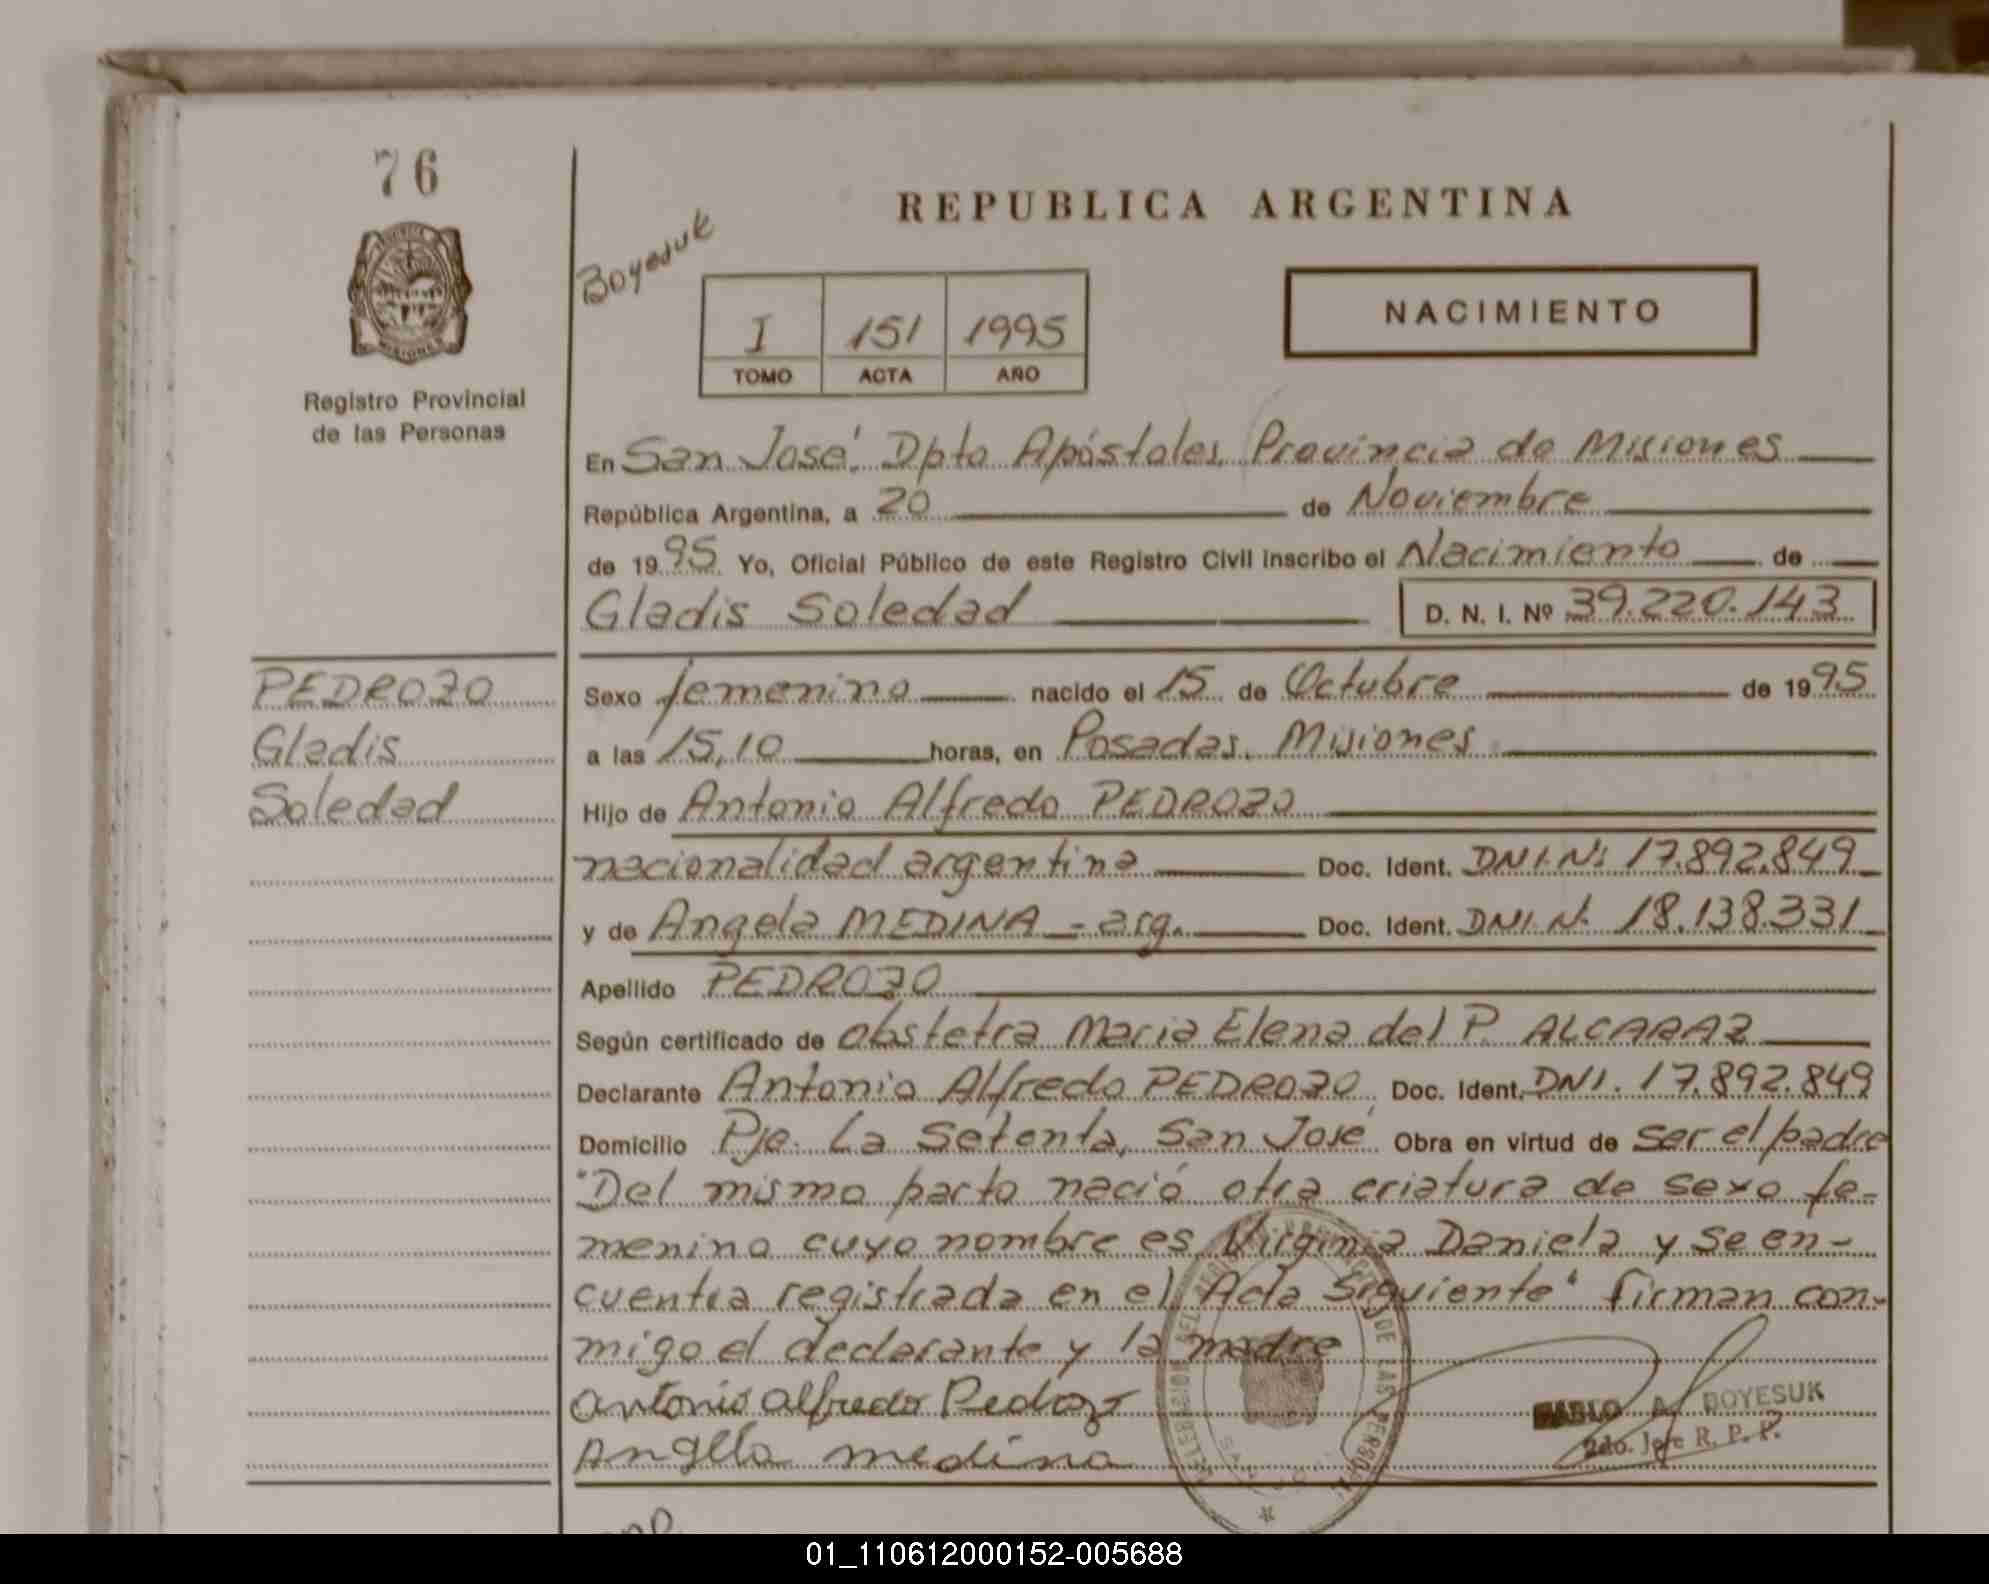 76
REPUBLICA ARGENTINA
Boyesuk
NACIMIENTO
I 151 1995
TOMO ACTA AÑO
MISIONES
Registro Provincial
de las Personas
En San José. Dpto Apóstoles, Provincia de Misiones
República Argentina, a 20 de Noviembre
de 1995 Yo, Oficial Público de este Registro Civil inscribo el Nacimiento de
Gladis Soledad D. N. I. Nº 39.220.143
PEDROZO
Gladis
Soledad
Sexo femenino nacido el 15 de Octubre de 1995
a las 15,10 horas, en Posadas. Misiones
Hijo de Antonio Alfredo PEDROZO
nacionalidad argentina Doc. Ident. DNI.Nº 17.892.849
y de Angela MEDINA - arg. Doc. Ident. DNI.Nº 18.138.331
Apellido PEDROZO
Según certificado de obstetra Maria Elena del P. ALCARAZ
Declarante Antonio Alfredo PEDROZO Doc. Ident. DNI. 17.892.849
Domicilio Pje. La Setenta, San José Obra en virtud de ser el padre
"Del mismo parto nació otra criatura de sexo fe-
menino cuyo nombre es Virginia Daniela y se en-
cuentra registrada en el Acta Siguiente" firman con-
migo el declarante y la madre
Antonio alfredo Pedozo
Angela medina
PABLO A. BOYESUK
2do. Jefe R. P. P.
01_110612000152-005688